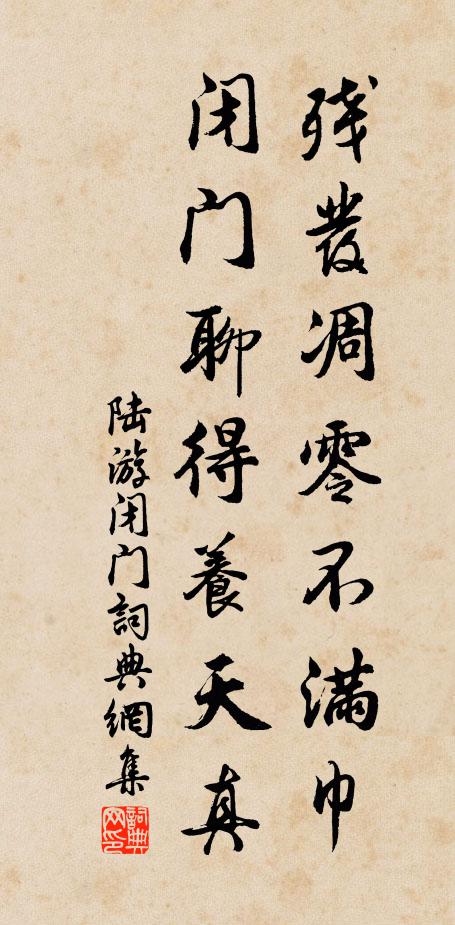 残發凋零不滿巾
闭门聊得養天真
陆游闭门詞典網集
詞典网印